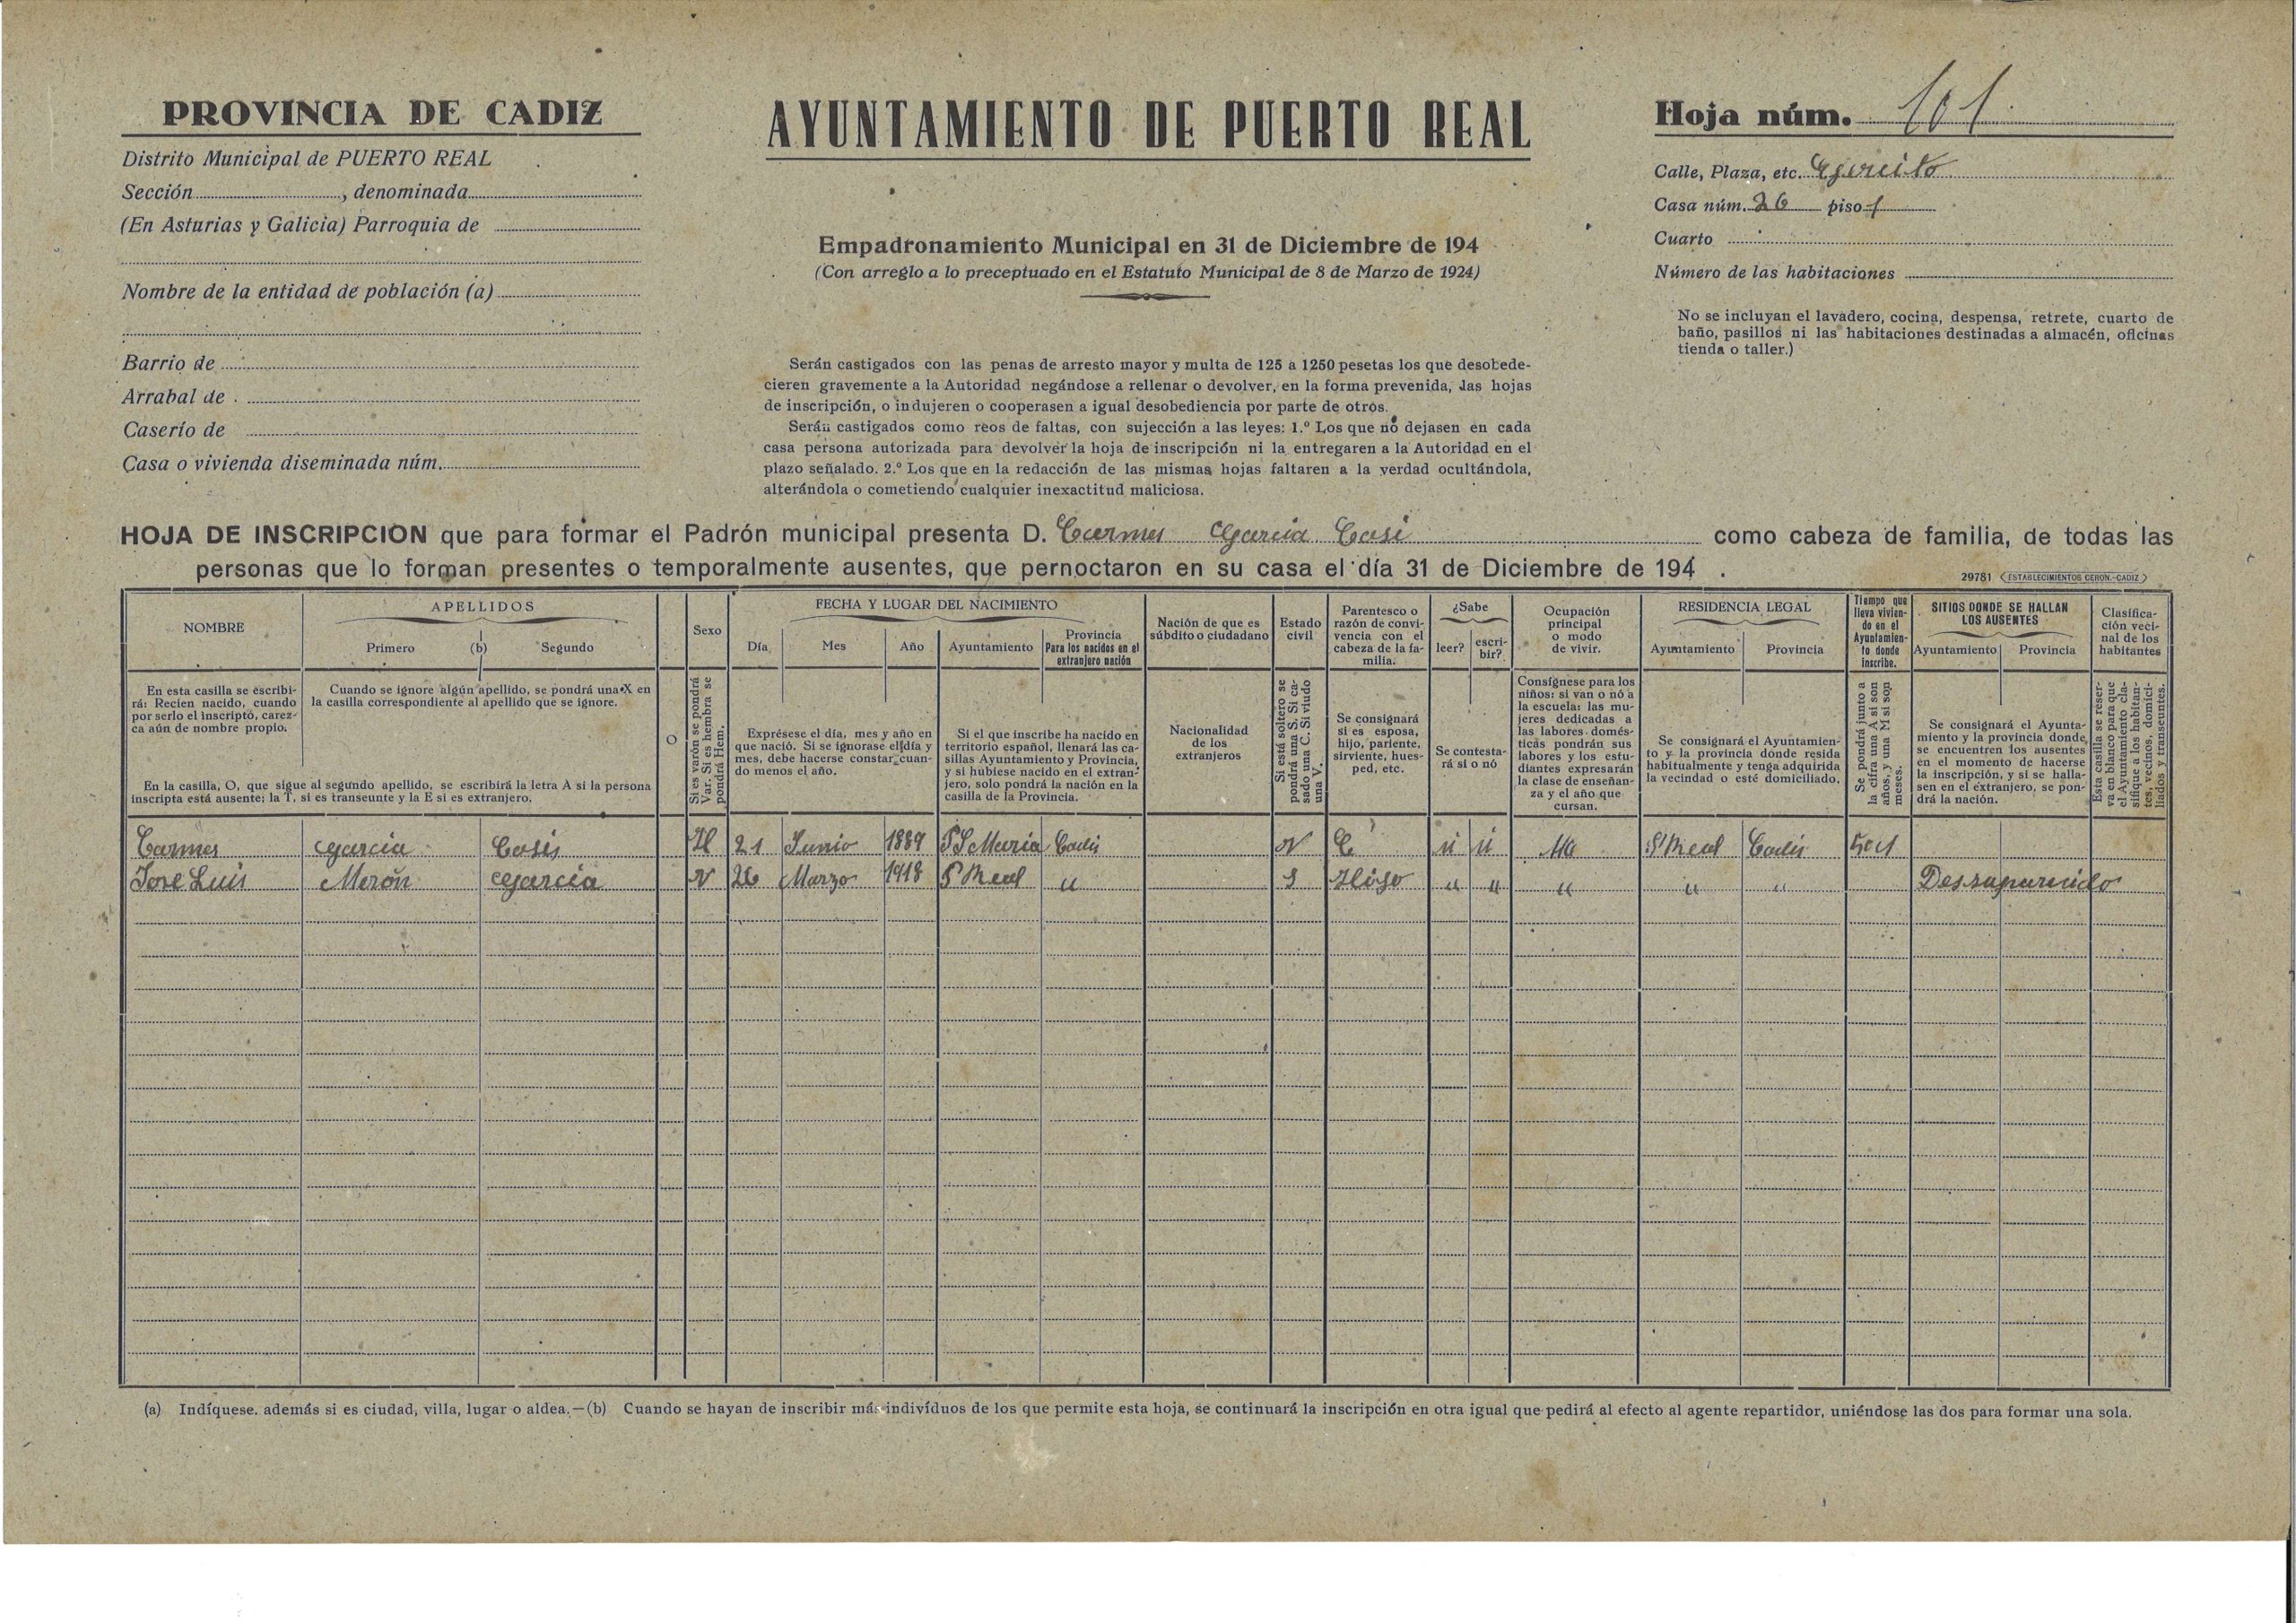 PROVINCIA DE CADIZ
Distrito Municipal de PUERTO REAL
Sección , denominada
(En Asturias y Galicia) Parroquia de
Nombre de la entidad de población (a)
Barrio de
Arrabal de
Caserío de
Casa o vivienda diseminada núm.
AYUNTAMIENTO DE PUERTO REAL
Empadronamiento Municipal en 31 de Diciembre de 194
(Con arreglo a lo preceptuado en el Estatuto Municipal de 8 de Marzo de 1924)
Serán castigados con las penas de arresto mayor y multa de 125 a 1250 pesetas los que desobede-
cieren gravemente a la Autoridad negándose a rellenar o devolver, en la forma prevenida, las hojas
de inscripción, o indujeren o cooperasen a igual desobediencia por parte de otros.
Serán castigados como reos de faltas, con sujección a las leyes: 1.º Los que no dejasen en cada
casa persona autorizada para devolver la hoja de inscripción ni la entregaren a la Autoridad en el
plazo señalado. 2.º Los que en la redacción de las mismas hojas faltaren a la verdad ocultándola,
alterándola o cometiendo cualquier inexactitud maliciosa.
Hoja núm. 101
Calle, Plaza, etc. Ejercito
Casa núm. 26 piso 1
Cuarto
Número de las habitaciones
No se incluyan el lavadero, cocina, despensa, retrete, cuarto de
baño, pasillos ni las habitaciones destinadas a almacén, oficinas
tienda o taller.)
HOJA DE INSCRIPCION que para formar el Padrón municipal presenta D. Carmen Garcia Casi como cabeza de familia, de todas las
personas que lo forman presentes o temporalmente ausentes, que pernoctaron en su casa el día 31 de Diciembre de 194 .
29781 (ESTABLECIMIENTOS CERON.-CADIZ)
NOMBRE
APELLIDOS
Primero (b) Segundo
O
Sexo
FECHA Y LUGAR DEL NACIMIENTO
Día Mes Año Ayuntamiento
Provincia
Para los nacidos en el
extranjero nación
Nación de que es
súbdito o ciudadano
Estado
civil
Parentesco o
razón de convi-
vencia con el
cabeza de la fa-
milia.
¿Sabe
leer? escri-
bir?
Ocupación
principal
o modo
de vivir.
RESIDENCIA LEGAL
Ayuntamiento Provincia
Tiempo que
lleva vivien-
do en el
Ayuntamien-
to donde
inscribe.
SITIOS DONDE SE HALLAN
LOS AUSENTES
Ayuntamiento Provincia
Clasifica-
ción veci-
nal de los
habitantes
En esta casilla se escribi-
rá: Recien nacido, cuando
por serlo el inscripto, carez-
ca aún de nombre propio.
Cuando se ignore algún apellido, se pondrá una X en
la casilla correspondiente al apellido que se ignore.
En la casilla, O, que sigue al segundo apellido, se escribirá la letra A si la persona
inscripta está ausente; la T, si es transeunte y la E si es extranjero.
Si es varón se pondrá
Var. Si es hembra se
pondrá Hem.
Exprésese el día, mes y año en
que nació. Si se ignorase el día y
mes, debe hacerse constar cuan-
do menos el año.
Si el que inscribe ha nacido en
territorio español, llenará las ca-
sillas Ayuntamiento y Provincia,
y si hubiese nacido en el extran-
jero, solo pondrá la nación en la
casilla de la Provincia.
Nacionalidad
de los
extranjeros
Si está soltero se
pondrá una S. Si ca-
sado una C. Si viudo
una V.
Se consignará
si es esposa,
hijo, pariente,
sirviente, hues-
ped, etc.
Se contesta-
rá si o nó
Consígnese para los
niños: si van o nó a
la escuela: las mu-
jeres dedicadas a
las labores domés-
ticas pondrán sus
labores y los estu-
diantes expresarán
la clase de enseñan-
za y el año que
cursan.
Se consignará el Ayuntamien-
to y la provincia donde resida
habitualmente y tenga adquirida
la vecindad o esté domiciliado.
Se pondrá junto a
la cifra una A si son
años, y una M si son
meses.
Se consignará el Ayunta-
miento y la provincia donde
se encuentren los ausentes
en el momento de hacerse
la inscripción, y si se halla-
sen en el extranjero, se pon-
drá la nación.
Esta casilla se reser-
va en blanco para que
el Ayuntamiento cla-
sifique a los habitan-
tes, vecinos, domici-
liados y transeuntes.
Carmen Garcia Casis H 21 Junio 1889 P S Maria Cadis V C si si P Real Cadis
Jose Luis Merón Garcia V 26 Marzo 1918 P Real " S Hijo " " " " " Desaparecido
(a) Indíquese. además si es ciudad, villa, lugar o aldea.—(b) Cuando se hayan de inscribir más indivíduos de los que permite esta hoja, se continuará la inscripción en otra igual que pedirá al efecto al agente repartidor, uniéndose las dos para formar una sola.